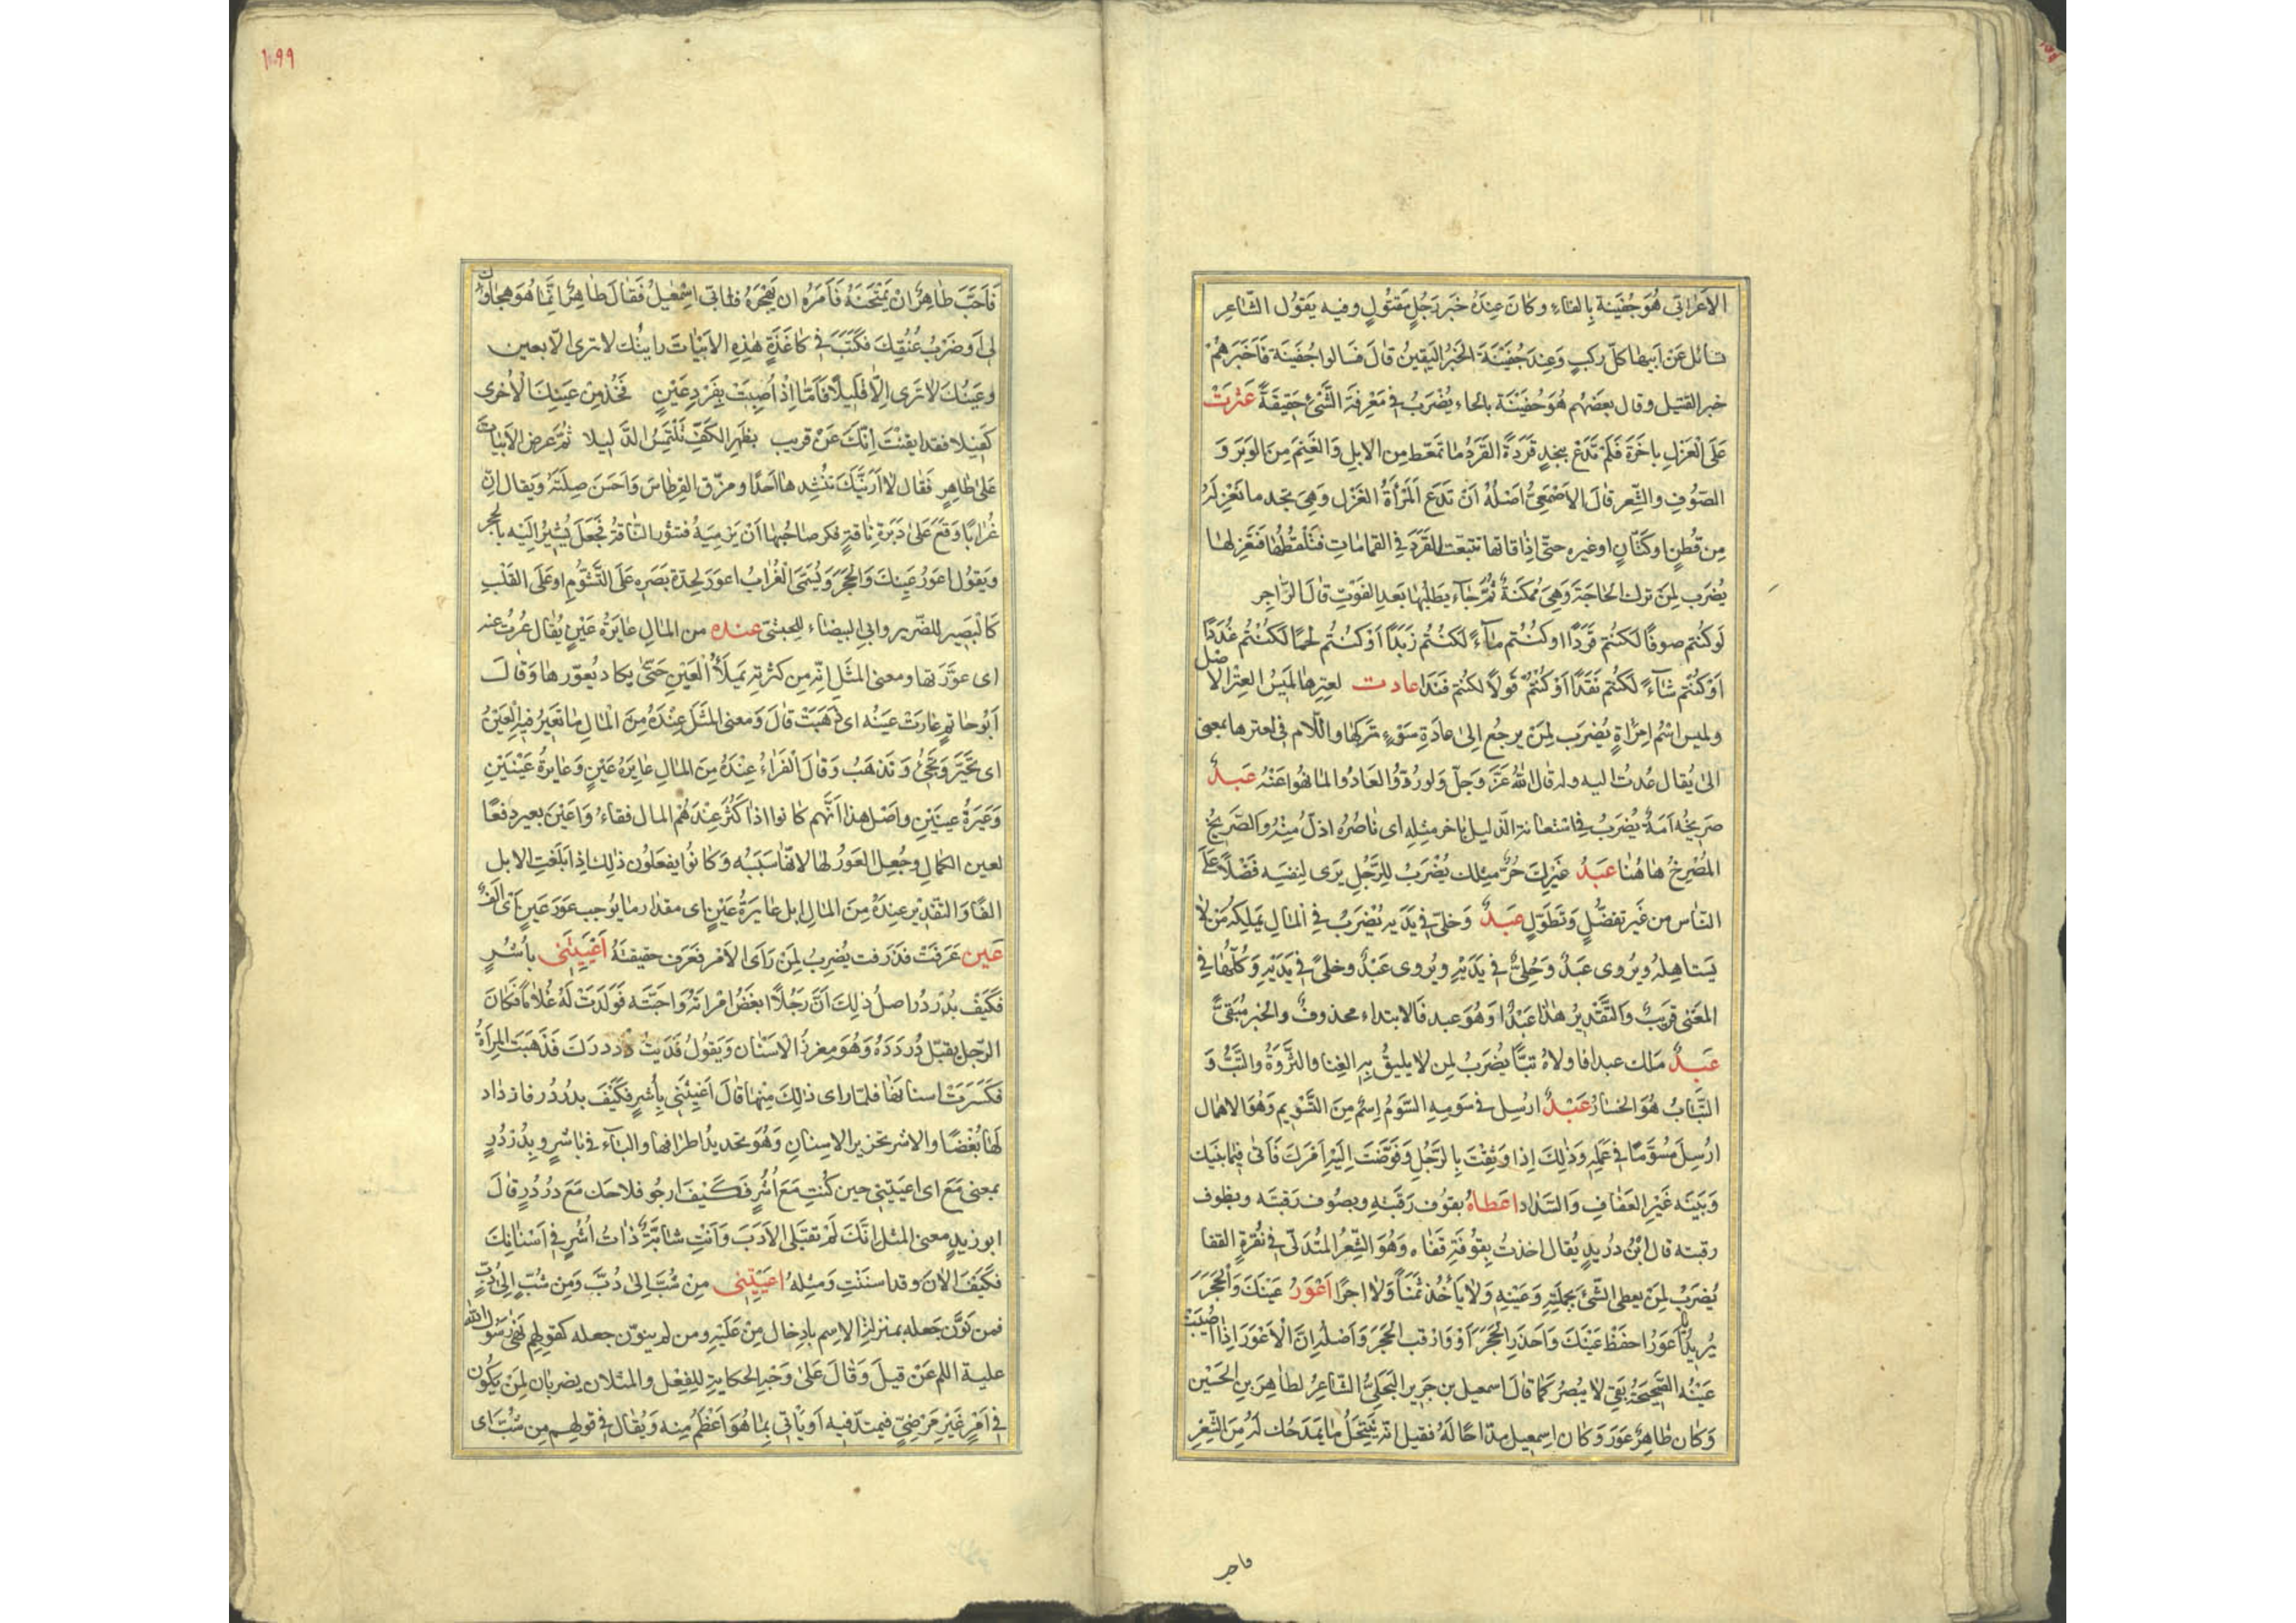 الاَعرابى هُوَ جُفَينة بِالفاءِ وكانَ عِندَهُ خَبَر رَجُلٍ مَقتُولٍ وفيه يَقوُل الشّاعِر
تسائل عَنْ اَبيها كلّ ركبٍ وَعِندَ جُفَيْنَةَ الخَبَرُ اليَقينُ قالَ فسَالوا جُفَينَة فَاَخبَرَهُمْ
خبر القتيل وقال بعضهُم هُوَ حُفَينَة بالحاء يُضْرَبُ فى مَعْرِفة الشَّئ حَقيقَةً عَثَرتْ
عَلَى الْغَزلِ باخَرَة فَلَمْ تَدَعْ بنجدٍ قَرَدَةً القَرَدُ ما تمعّط مِن الابلِ وَالغنَم مِنَ الوَبَر وَ
الصّوُفِ والشِّعر قالَ الاَصْمَعِىُّ اَصْلُهُ اَنْ تَدَع المَرْأةُ الغَزْل وَهِىَ تجد ما تَغْزِلَهُ
مِن قُطنٍ اوكتّانٍ اوغيره حتّى اِذا فاتها تتبّعت القَرَدَ فى القماماتِ فتَلْتقطُها فتَغزِلها
يُضرَب لِمَن ترك الحَاجَة وَهِىَ مُمكنَةٌ ثُمَّ جٰاءَ يَطلُبُها بَعد الفَوْتِ قالَ الرّاجِر
لَو كُنتم صوفًا لكنتم قَرَدًا اوكنُتُم مٰاءً لكنُتُم زَبَدًا اَوْ كنُتُم لحمًا لَكُنْتُم غُدَدًا
اَوْ كُنتُم شآءً لَكُنتُم نَقَدًا اَوْكنتُمْ قولاً لكنتم فَنَدا عادت لعِترِها لميسُ العِتْر الاصل
ولميس اسْمُ امرَاةٍ يُضرَب لِمَنْ يرجعُ اِلى عادَةِ سَوءٍ تَرَكها واللّام فى لعترها بمعنى
الىٰ يُقال عُدتُ اليه وله قال اللهُ عَزَّ وَجَلّ وَلو رُدّوُا لعَادُوا لما نهُوا عَنْهُ عَبدٌ
صَريخُه اَمَةٌ يُضرَبُ فى استعانة الذّليل بآخر مثلِهِ اى ناصُرهُ اذلّ مِنْهُ والصّريخُ
المُصْرِخُ هاهُنا عَبدُ غَيْرِكَ حُرٌّ مِثلك يُضْرَبُ لِلرَّجُلِ يَرى لِنفسِه فَضْلًا عَلَى
النّاس من غَير تفضّلٍ وَتَطَوّلٍ عَبدٌ وَخلىّ فى يَدَيه يُضْرَبُ فى المٰالِ يَملِكه مَن لا
يَستاهِلهُ ويُروى عَبدٌ وَحُلىٌ فى يَدَيْهِ ويُروى عَبْدٌ وخلىً فى يَدَيْهِ وَكلّها فى
المعَنى قريبٌ وَالتَّقدِيرُ هٰذا عَبْدٌ اوَ هُوَ عبد فَالابتداء محذوفٌ والخبر مُبَقىًّ
عَبدٌ مَلك عبدا فاولاهُ تبًّا يُضرَبُ لِمن لا يليقُ بِهِ الغِنا والثَّروَةُ والتَّبُّ وَ
التَّبابُ هُوَ الخسَارُ عَبْدٌ ارُسِل فى سَومِهِ السَّومُ اِسْمٌ مِنَ التَّسْويم وَهُوَ الاهمال
ارُسِلَ مُسَوَّمًا فى عَملِهِ وَذٰلِكَ اِذا وَثِقْتَ بِالرّجُلِ وَفَوَّضَتَ اِلَيهِ اَمْرَكَ فَاَتى فيما بَينَك
وَ بَينَه غَيْرِ العَفافِ وَالسَّداد اعَطاهُ بقوُفِ رَقَبَتِهِ وبصُوف رَقبَته وبظوف
رقبته قال ابْنُ دُرَيدٍ يُقال اخذتُ بِقوُفَةِ قفاه وَهُوَ الشَّعرُ المتُدَلىّ فى نُقرَةِ القفا
يُضرَبُ لِمَنْ يعطى الشّئ بجملَتِهِ وَعَينِهِ وَلا يَأخُذ ثمَناً وَلا اجرًا اَعْوَرُ عَيْنَكَ وَالحَجَرَ
يُريدُ يا اَعوَرُ احفَظْ عَيْنَكَ وَاحذَرِ الحَجَرَ اَوْ وَارْقب الحَجَرَ وَاَصْلُه اِنَّ الْاَعْوَرَ اِذا اُصيبَتْ
عَيْنُه الصَّحيحَةُ بَقِىَ لا يُبْصِرُ كَما قالَ اسمعيل بن جَريرٍ البَجَلِىُّ الشّاعِرُ لطاهِرَ بنِ الحُسَيْن
وَكان طاهِرٌ عَوَرَ وَكان اِسمعيل مدّاحًا لَهُ فقيل انّه يَنْتَحَلُ ما يَمدَحُك لَهُ مِنَ الشِّعْرِ
فاجر
١٩٩
فَاَحَبَّ طاهِرٌ انْ يَمْتَحِنَهُ فَاَمَرَهُ ان يَهْجُرَهُ فابى اسْمٰعيلُ فَقالَ طاهِرٌ انَّمٰا هُوَ هِجاؤك
لى اَو ضَرْبُ عُنُقِكَ فَكَتَبَ فى كاغَذَةٍ هٰذِهِ الاَبْيٰاتَ راَيتُك لا ترى الّا بعين
وعَيْنُكَ لا تَرى اِلّا قَليلًا فَاَمّا اِذْ اُصِبْتَ بِفَرْدِ عَيْنٍ فَخُذ مِنْ عَينِكَ الْاُخرى
كَفيلا فقد ايقنْتَ اِنّكَ عَنْ قريب بظَهرِ الكَفِّ تَلْتَمِسُ السَّبيلا ثمَّ عَرضَ الاَبْيات
عَلىٰ طاهِرٍ فَقال لا اَرَيَنَّكَ تنُشِدها اَحَدًا ومزّق القِرطاسَ وَاَحسَنَ صِلَتَهُ وَيقال انّ
غُرابًا وَقَعَ عَلىٰ دَبَرَةِ ناقةٍ فكره صاحُبها اَنْ يَرْميَهُ فتثور النّاقةُ فَجَعَلَ يُشيرُ اِلَيْه بِالحجر
وَيقوُل اعوَرُ عَينكَ وَالحَجَرَ وَيُسَمَّى الْغُرابُ اعوَرَ لِحِدّة بَصَرِه عَلَى التَّشَؤّمِ اوعَلَى القَلْبِ
كَالْبَصير للضّرير وابى البيضاء للحبشىّ عنده من المالِ عايَرَةُ عَيْنٍ يُقال عُرتُ عَينه
اى عوَّرَتها ومعنى المثَلِ انّه مِن كثرتِهِ يَملَأُ الْعَيْنِ حَتّىٰ يكاد يُعوّرها وَقالَ
اَبوُ حاتمٍ عارَتْ عَيْنُه اى ذَهَبَتْ قالَ وَمعنى المثَلَ عِنْدَهُ مِنَ المالِ ما تَعيرُ فيهِ الْعَيْنُ
اى تحَيَّرَ وَتجَىءُ وَتذهَبُ وَقالَ الْفَرّاءُ عِنْدَهُ مِنَ المالِ عايَرَهُ عَينٍ وَعايرةُ عَيْنَينِ
وَعَيَرَةُ عينَينِ واَصْل هذا اَنّهم كانوا اذا كثُرَ عِنْدَهُم المال فقاءُوا عَيْنَ بعير دفعًا
لعين الكمال وجُعِلَ العَوَرُ لها لانّها سَبَبُه وَكانوُا يفعَلوُن ذٰلِكَ اِذا بَلَغَتِ الابل
الفًا وَالتّقديْر عِندَهُ مِنَ المالِ ابل عايرَةُ عَيْنٍ اى مقدار ما يوُجب عَورَ عَينٍ اَى الَفٌ
عَين عَرَفَتْ فذَرَفت يُضرِبُ لِمَنْ رَأى الاَمْرَ فعَرَف حَقيقتَهُ اَعْيَيتَنى بأُشُرٍ
فكَيَفْ بدُرْدُر اصلُ ذٰلِكَ اَنّ رَجُلًا ابغضُ امْراَتَهُ وَاحبّته فَوَلَدَتْ لَهُ غُلاماً فَكانَ
الرّجل يقبّل دُردَدَهُ وَهُوَ مغرزُ الْاسَنان وَيَقوُل فدَيتُ دُردرَكَ فَذَهَبَت المرأةُ
فكَسَرَتْ اسنانها فلمّا راى ذٰلِكَ مِنْها قالَ اَعْيَيْتَنى بِاُشُرٍ فَكَيْفَ بدُرْدُر فازداد
لَها بُغْضًا والاشر تحزيز الاسِنانِ وَهُوَ تحديدُ اطرافها والباء فى باشرٍ وبدُرْدُرٍ
بمعنى مَعَ اى اعيَيتنى حين كُنتِ مَعَ اُشُرٍ فكَيْفَ ارجُو فلاحك مَعَ دُردُرٍ قالَ
ابو زيدٍ معنى المثل انّكَ لَمْ تقبَلى الاَدَبَ وَاَنْتِ شابّةٌ ذاتُ اُشُرٍ فى اَسْنانِكَ
فكَيَفَ الآنَ وقد اسنَنْتِ وَمِثلهُ اعيَيْتِنى مِنْ شُبَّ اِلى دُبَّ وَمِن شُبٍّ اِلى دُبٍّ
فمن نَوَّن جَعله بمنزلةِ الاِسِم بادِخال مِنْ عَلَيْهِ ومن لم ينوّن جعله كقولِهم نَهىٰ رَسُولُ الله
عليه السلم عَنْ قيلَ وَقالَ عَلىٰ وَجْهِ الحكايةِ لِلفِعْل والمثلان يضربان لِمَن يكُون
فى اَمرٍ غَيْر مَرْضِىٍّ فيمتدّ فيه اَو يَأتى بِما هُوَ اَعْظَمُ مِنه وَيُقال فى قولهم مِن شُبَّ اى